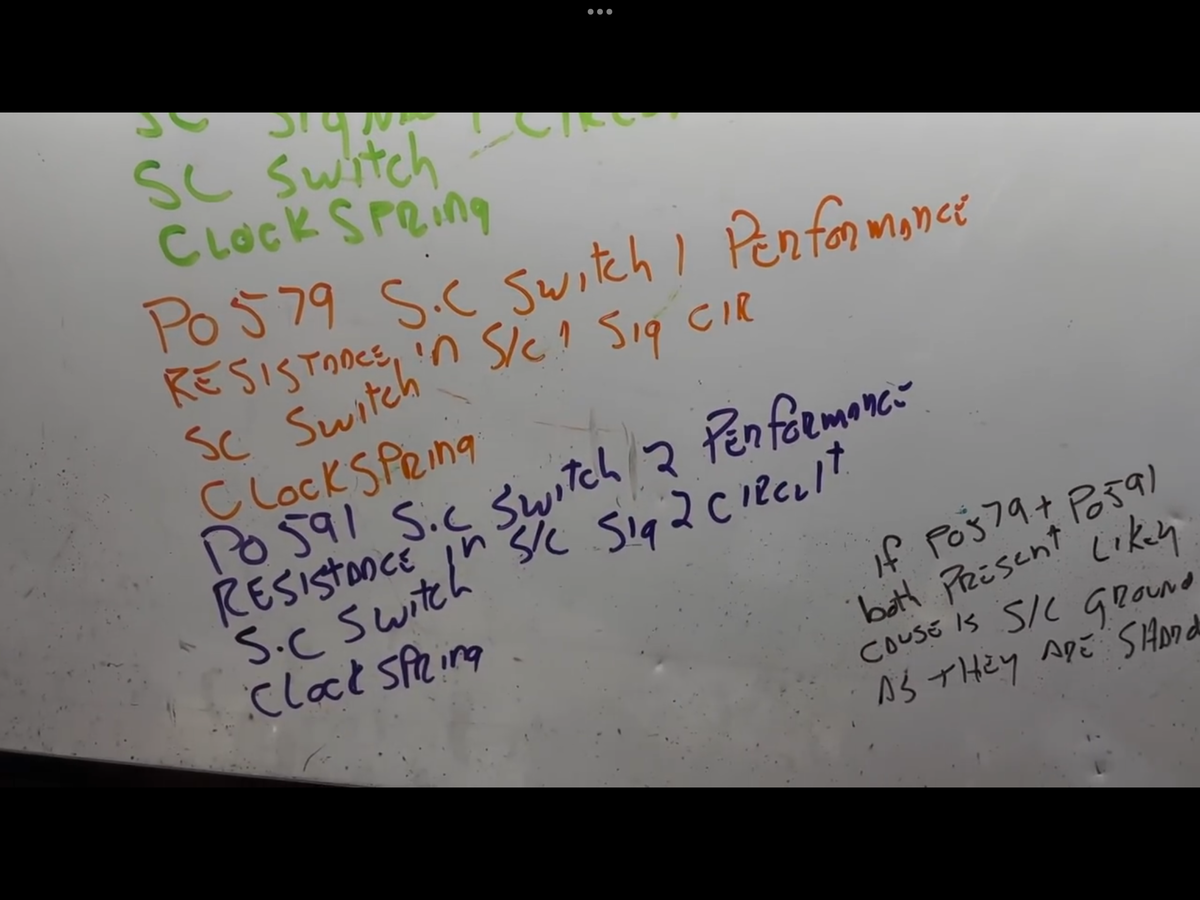 SC Signal 1 CIRCUIT
SC Switch
CLOCKSPRing
P0579 S.C Switch 1 Performance
RESISTANCE in S/C 1 Sig CIR
SC Switch
CLOCKSPRing
P0591 S.C Switch 2 Performance
RESISTANCE In S/C Sig 2 CIRCUIt
S.C Switch
Clock SPRing
if P0579 + P0591
both PRESEnt Likely
CAUSE is S/C GROUND
AS tHEy ARE SHAR